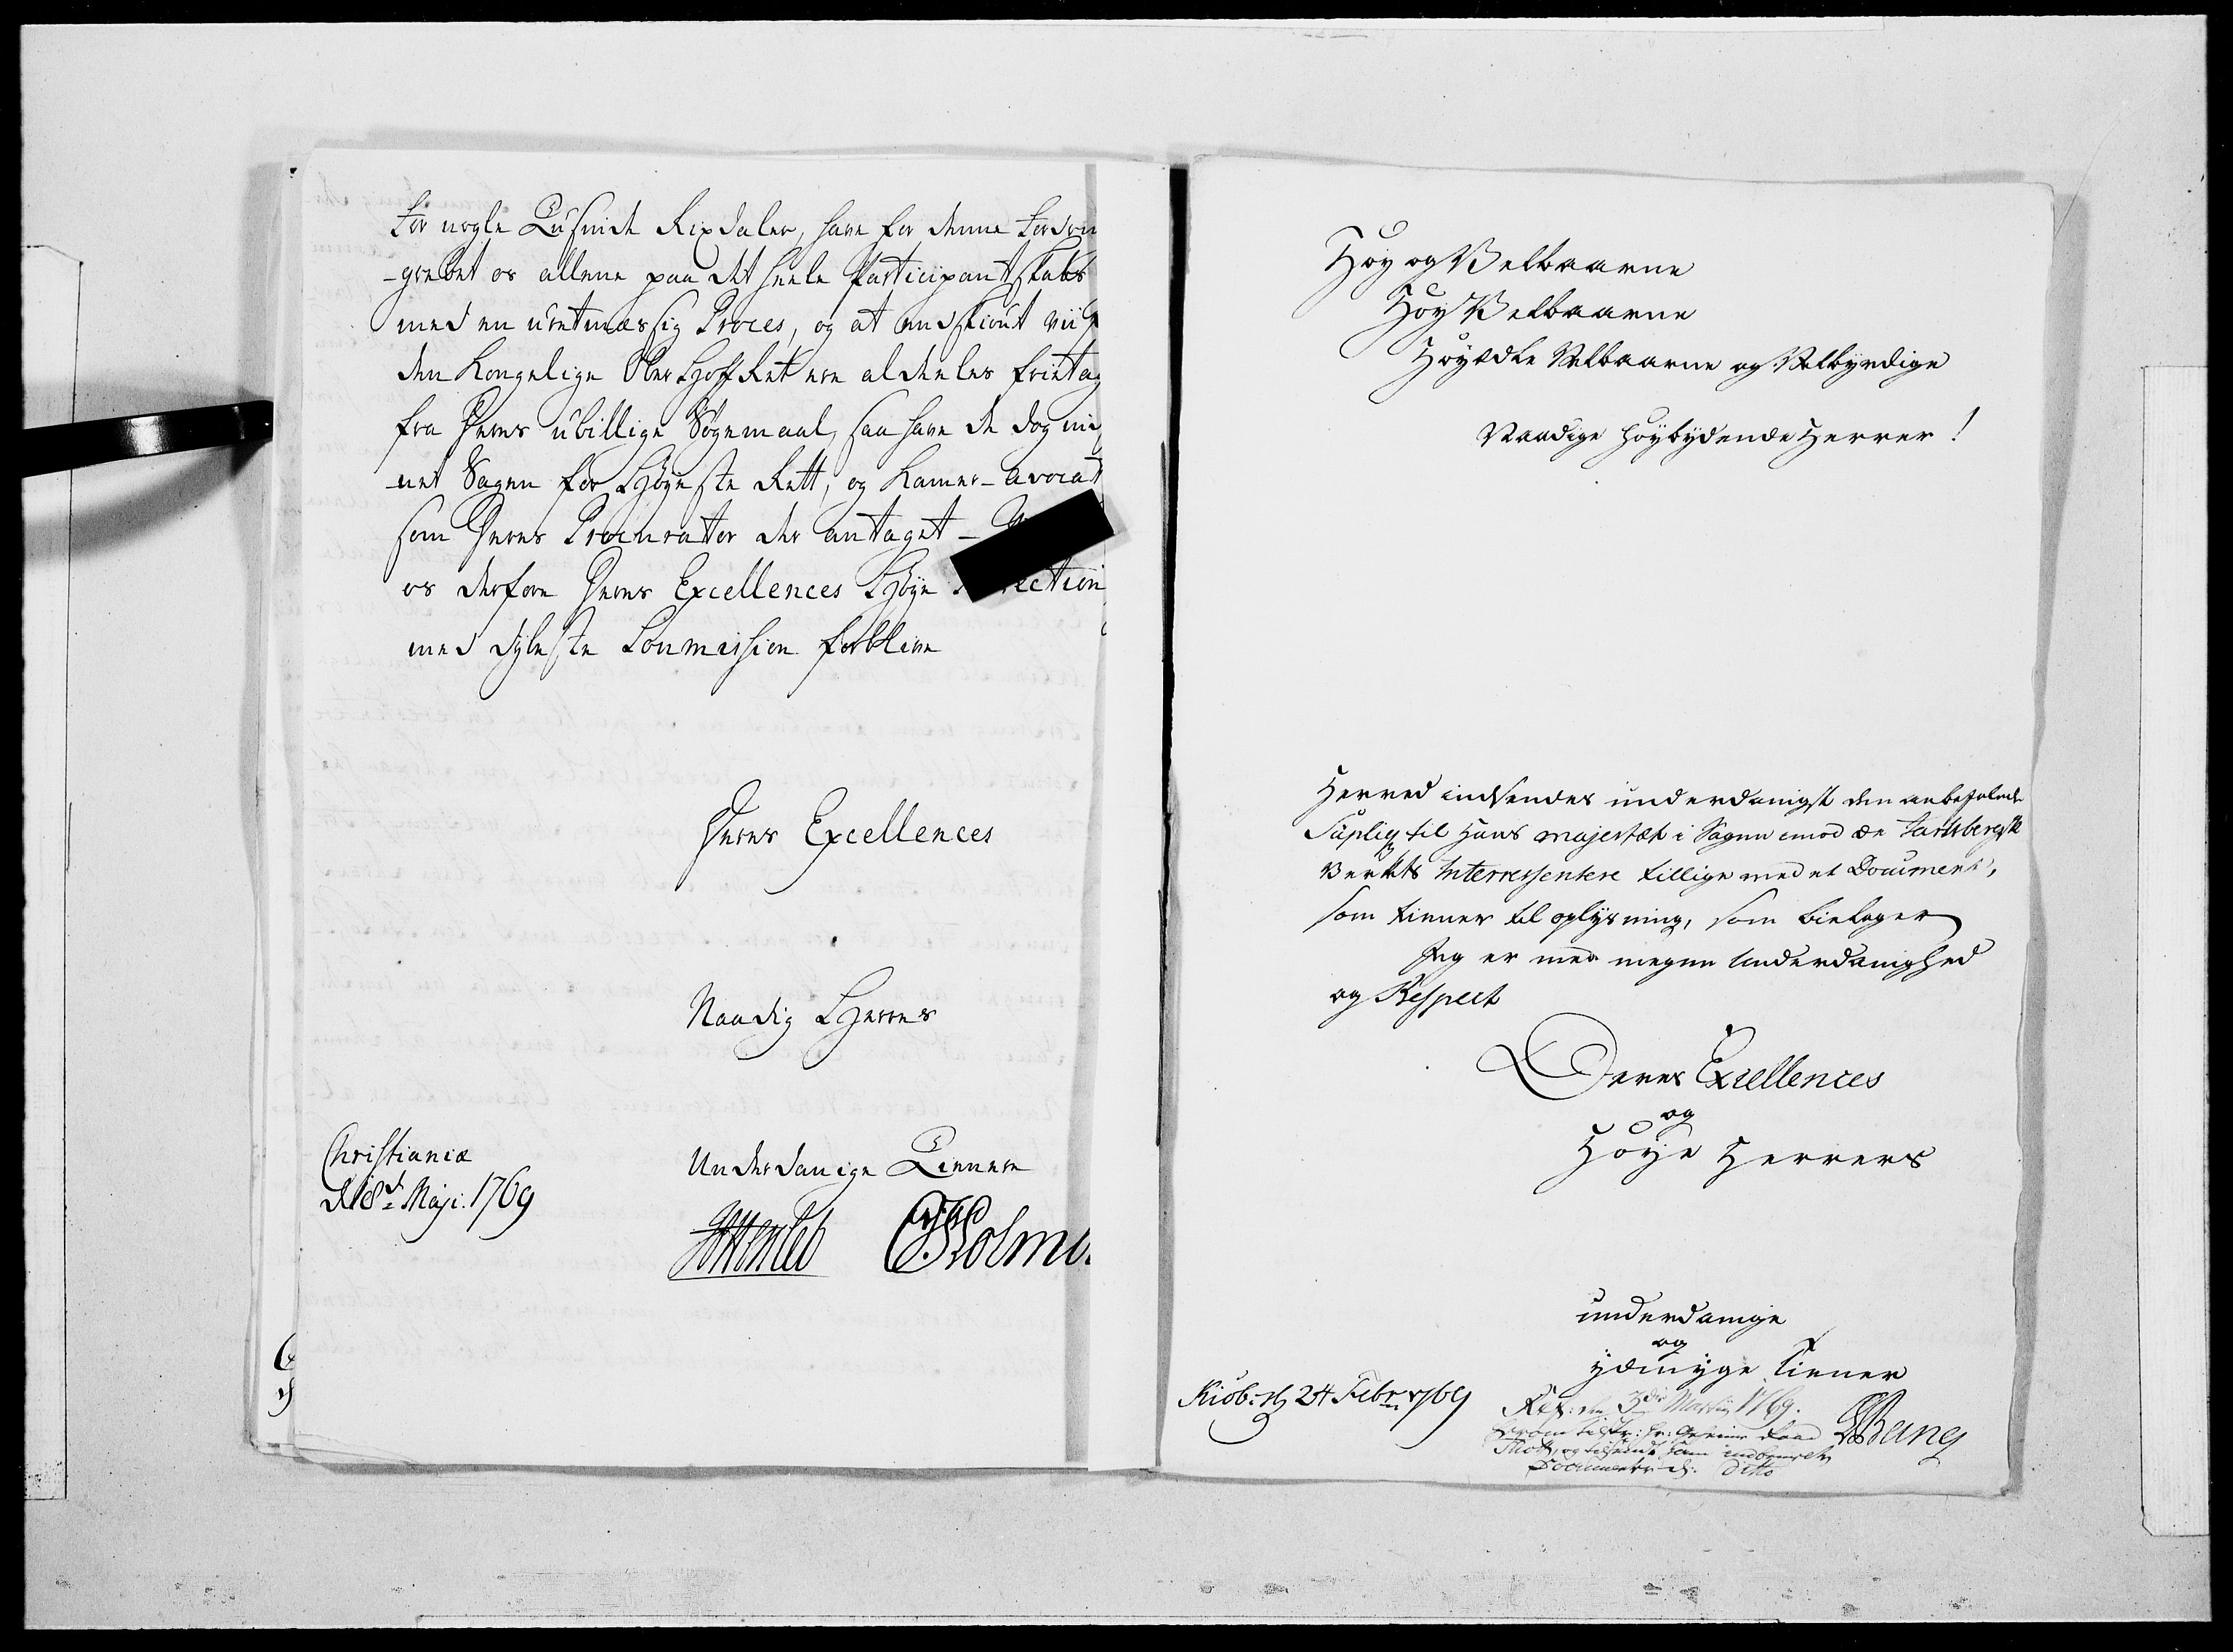 for nogle Tusinde Rixdaler, have for denne Fordrin
-grebet os allene paa det heele Participantskabs
med en uretmæssig Proces, og at endskiønt vii
den Kongelige Ober Hoff Ret ere aldeeles frietag
fra Deres ubillige Søgemaal, saa have de dog ind
-net Sagen for Høyeste Rett, og Kamer-Avocat
som Deres Procurator der antaget -
os derfore Deres Excellences Høye ection
med dybeste Soumission forblive
Deres Excellences
Naadig Herres
Christiania
d 18d. Maji. 1769
Underdanige Tienere
Holmb
Høy og Velbaarne
Høy Velbaarne
Høyædle Velbaarne og Velbyrdige
Naadige høybydende Herrer!
Herved indsendes underdanigst den anbefalede
Supliq til Hans Majestæt i Sagen imod de Jarlsbergske
Verkts Interressentere tillige med et Document,
som tiener til oplysning, som bielager
Jeg er med megen Underdanighed
og Respect
Deres Excellences
og
Høye Herrers
underdanige
og
ydmyge Tiener
Kiøb: d 24 Febr: 1769
Ref: den 3die Martij 1769.
Bang
Thott, og tilsendt ham
Documenter d: dito